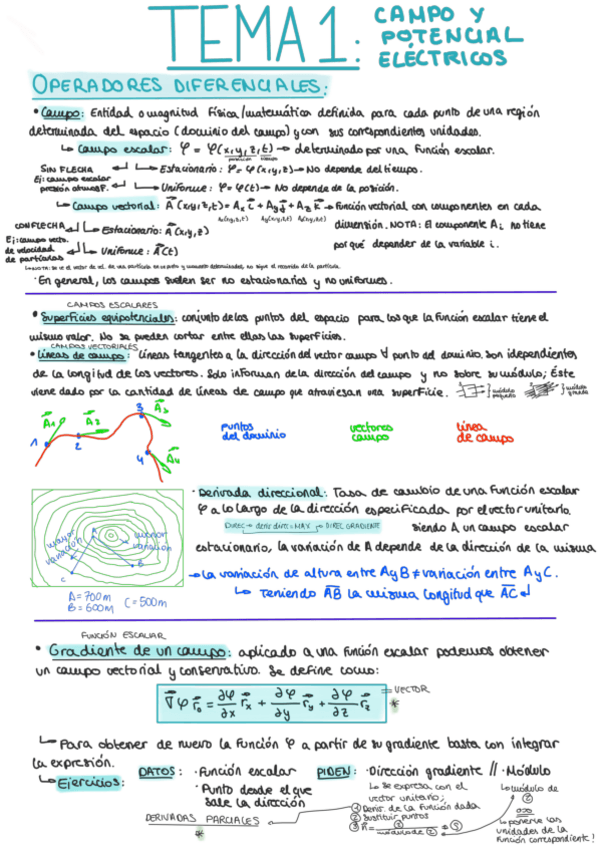 TEMA 1: CAMPO Y
POTENCIAL
ELÉCTRICOS
OPERADORES DIFERENCIALES:
• Campo: Entidad o magnitud física/matemática definida para cada punto de una región
determinada del espacio (dominio del campo) y con sus correspondientes unidades.
↳ Campo escalar: φ = φ(x,y,z,t) → determinado por una función escalar.
SIN FLECHA
Ej: campo escalar
presión atmosf.
↳ Estacionario: φ = φ(x,y,z) → No depende del tiempo.
↳ Uniforme: φ = φ(t) → No depende de la posición.
↳ Campo vectorial: A⃗(x,y,z,t) = Ax i⃗ + Ay j⃗ + Az k⃗ → Función vectorial con componentes en cada
Ax(x,y,z,t) Ay(x,y,z,t) Az(x,y,z,t)
dimensión. NOTA: El componente Ai no tiene
por qué depender de la variable i.
CON FLECHA
Ej: campo vecto.
de velocidad
de partículas
↳ Estacionario: A⃗(x,y,z)
↳ Uniforme: A⃗(t)
· En general, los campos suelen ser no estacionarios y no uniformes.
CAMPOS ESCALARES
• Superficies equipotenciales: conjunto de los puntos del espacio para los que la función escalar tiene el
mismo valor. No se pueden cortar entre ellas las superficies.
CAMPOS VECTORIALES
• Líneas de campo: líneas tangentes a la dirección del vector campo ∀ punto del dominio. Son idependientes
de la longitud de los vectores. Solo informan de la dirección del campo y no sobre su módulo; Éste
viene dado por la cantidad de líneas de campo que atraviesan una superficie.
módulo
pequeño
módulo
grande
1 A⃗1 2 A⃗2 3 A⃗3 4 A⃗4
puntos
del dominio
vectores
campo
línea
de campo
· Derivada direccional: Tasa de cambio de una función escalar
φ a lo largo de la dirección especificada por el vector unitario.
DIREC → deriv direc = MAX → DIREC. GRADIENTE
siendo A un campo escalar
estacionario, la variación de A depende de la dirección de la misma
mayor
variación
menor
variación
A
B
C
A = 700m
B = 600m
C = 500m
→ La variación de altura entre A y B ≠ variación entre A y C.
↳ Teniendo AB la misma longitud que AC
FUNCIÓN ESCALAR
• Gradiente de un campo: aplicado a una función escalar podemos obtener
un campo vectorial y conservativo. Se define como:
∇⃗φ r⃗0 = ∂φ/∂x r⃗x + ∂φ/∂y r⃗y + ∂φ/∂z r⃗z
= VECTOR
*
↳ Para obtener de nuevo la función φ a partir de su gradiente basta con integrar
la expresión.
↳ Ejercicios:
DATOS: · Función escalar
· Punto desde el que
sale la dirección
PIDEN: · Dirección gradiente // · Módulo
↳ Se expresa con el
vector unitario;
① Deriv. de la función dada
② Sustituir puntos
DERIVADAS PARCIALES
*
↳ módulo de
②
↳ ponerle las
unidades de la
función correspondiente!